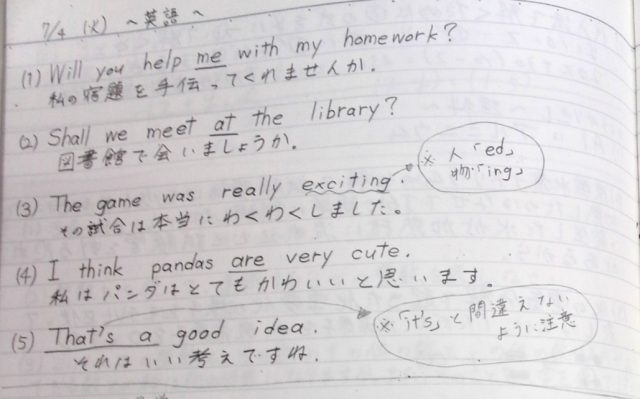 7/4 (火) ～英語～
(1) Will you help me with my homework?
私の宿題を手伝ってくれませんか.
(2) Shall we meet at the library?
図書館で会いましょうか.
(3) The game was really exciting.
その試合は本当にわくわくしました。
※ 人「ed」
物「ing」
(4) I think pandas are very cute.
私はパンダはとてもかわいいと思います。
(5) That's a good idea.
それはいい考えですね.
※「it's」と間違えない
ように注意